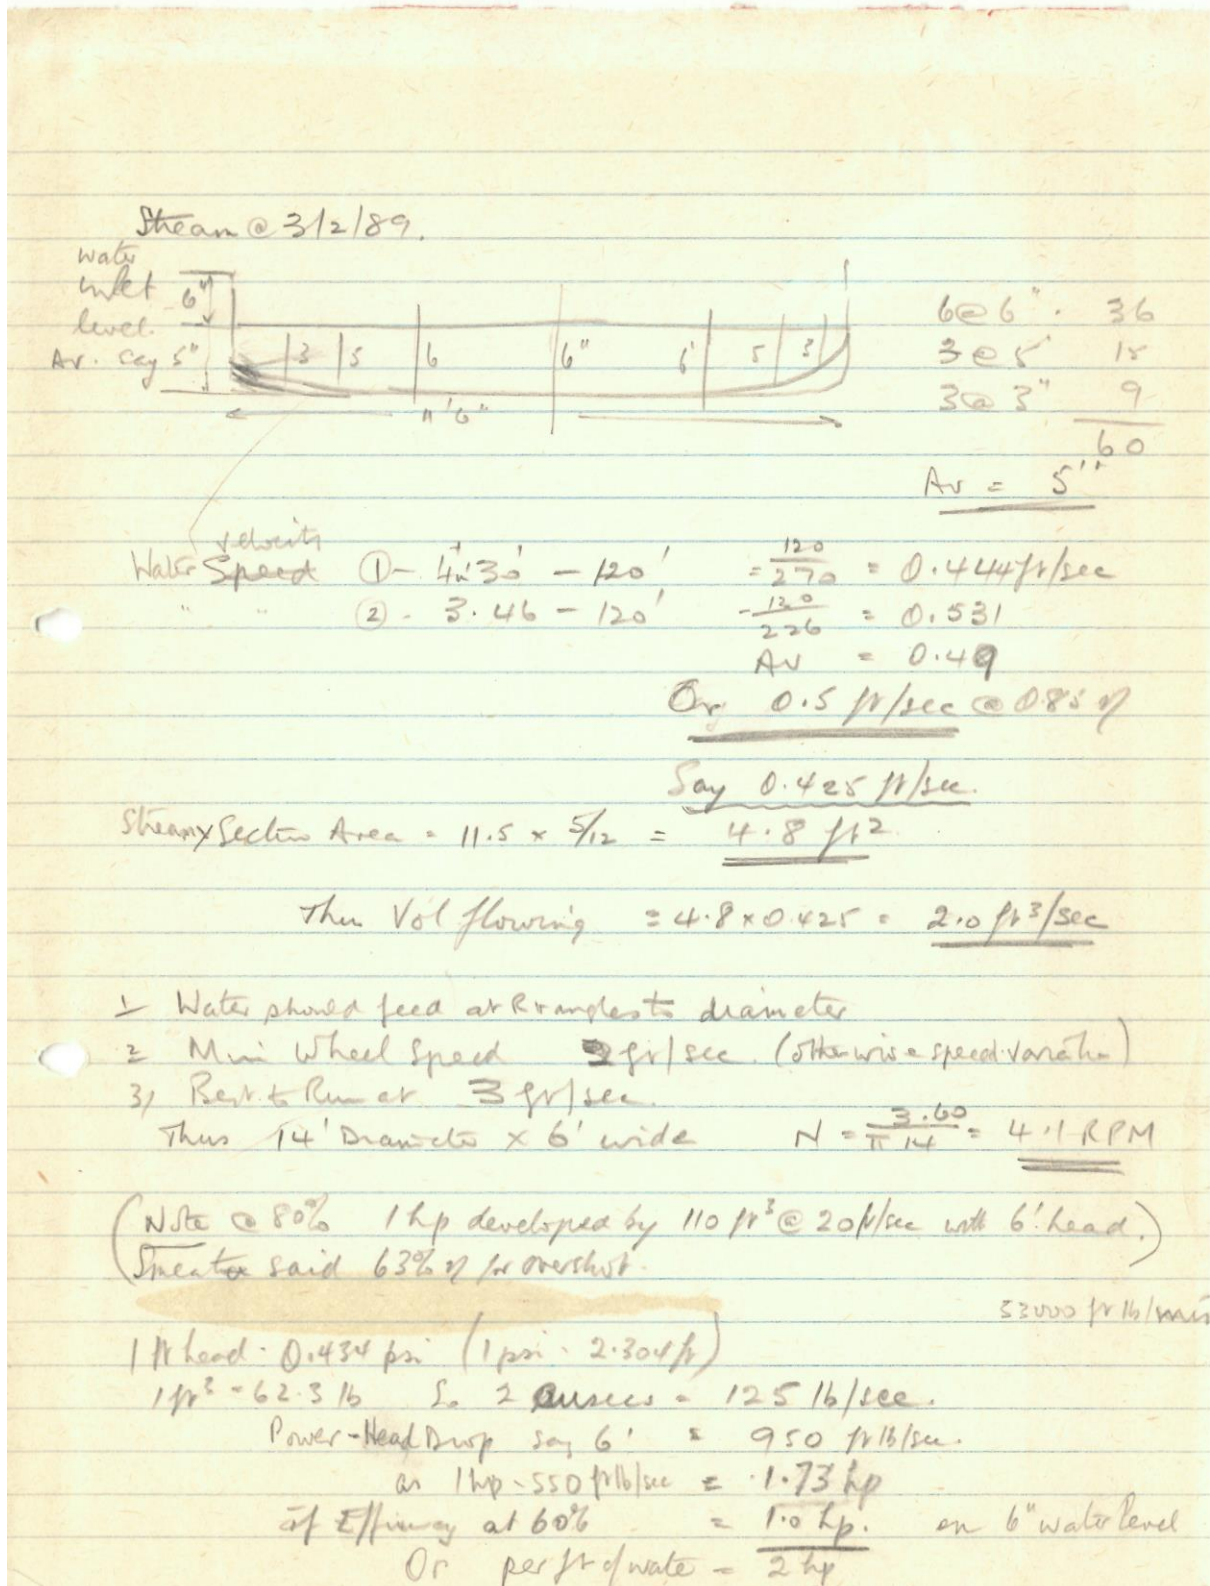 Stream @ 3/2/89.
water
inlet 6"
level.
Av. say 5" 3 5 6 6" 6' 5 3
11'6"
6@6" . 36
3@5 15
3@3" 9
60
Av = 5"
velocity
Water Speed ① - 4'.30' - 120' = 120/270 = 0.444 ft/sec
" " ② - 3.46 - 120' - 120/226 = 0.531
Av = 0.49
Or 0.5 ft/sec @ 0.85 η
Say 0.425 ft/sec.
Stream X Section Area = 11.5 x 5/12 = 4.8 ft2.
Then Vol flowing = 4.8 x 0.425 = 2.0 ft3/sec
1 Water should feed at Rt angles to diameter
2 Min Wheel Speed 2 ft/sec. (otherwise speed variation)
3, Best to Run at 3 ft/sec.
Thus 14' Diameter x 6' wide N = 3.60/π 14 = 4.1 RPM
(Note @ 80% 1 hp developed by 110 ft3 @ 20 ft/sec with 6' head.)
Smeaton said 63% η for overshot.
33000 ft lb/min
1 ft head - 0.434 psi (1 psi - 2.304 ft)
1 ft3 = 62.3 lb So 2 cusecs = 125 lb/sec.
Power - Head Drop say 6' = 950 ft lb/sec.
as 1 hp - 550 ft lb/sec = 1.73 hp
if Efficiency at 60% = 1.0 hp. on 6" water level
Or per ft of water = 2 hp